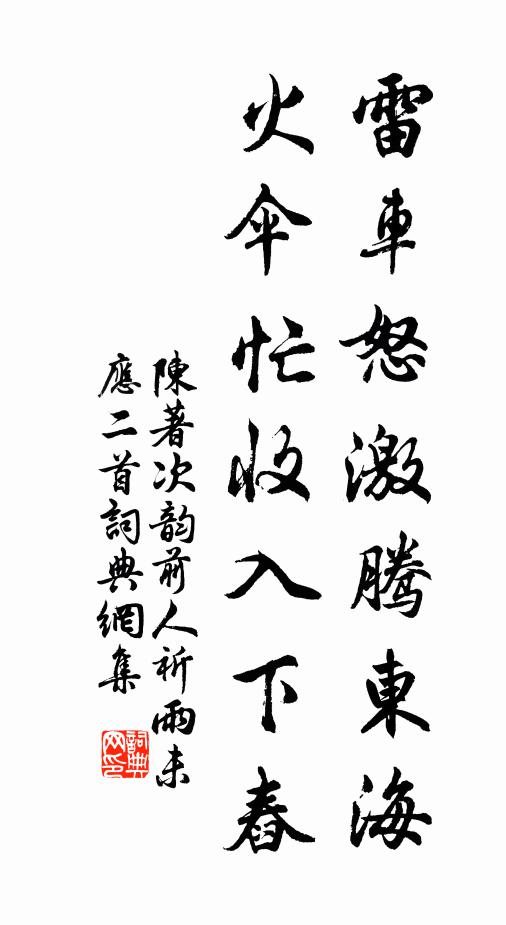 雷車怒激騰東海
火伞忙收入下舂
陳著次韵前人祈雨未
應二首詞典網集
詞典
网印